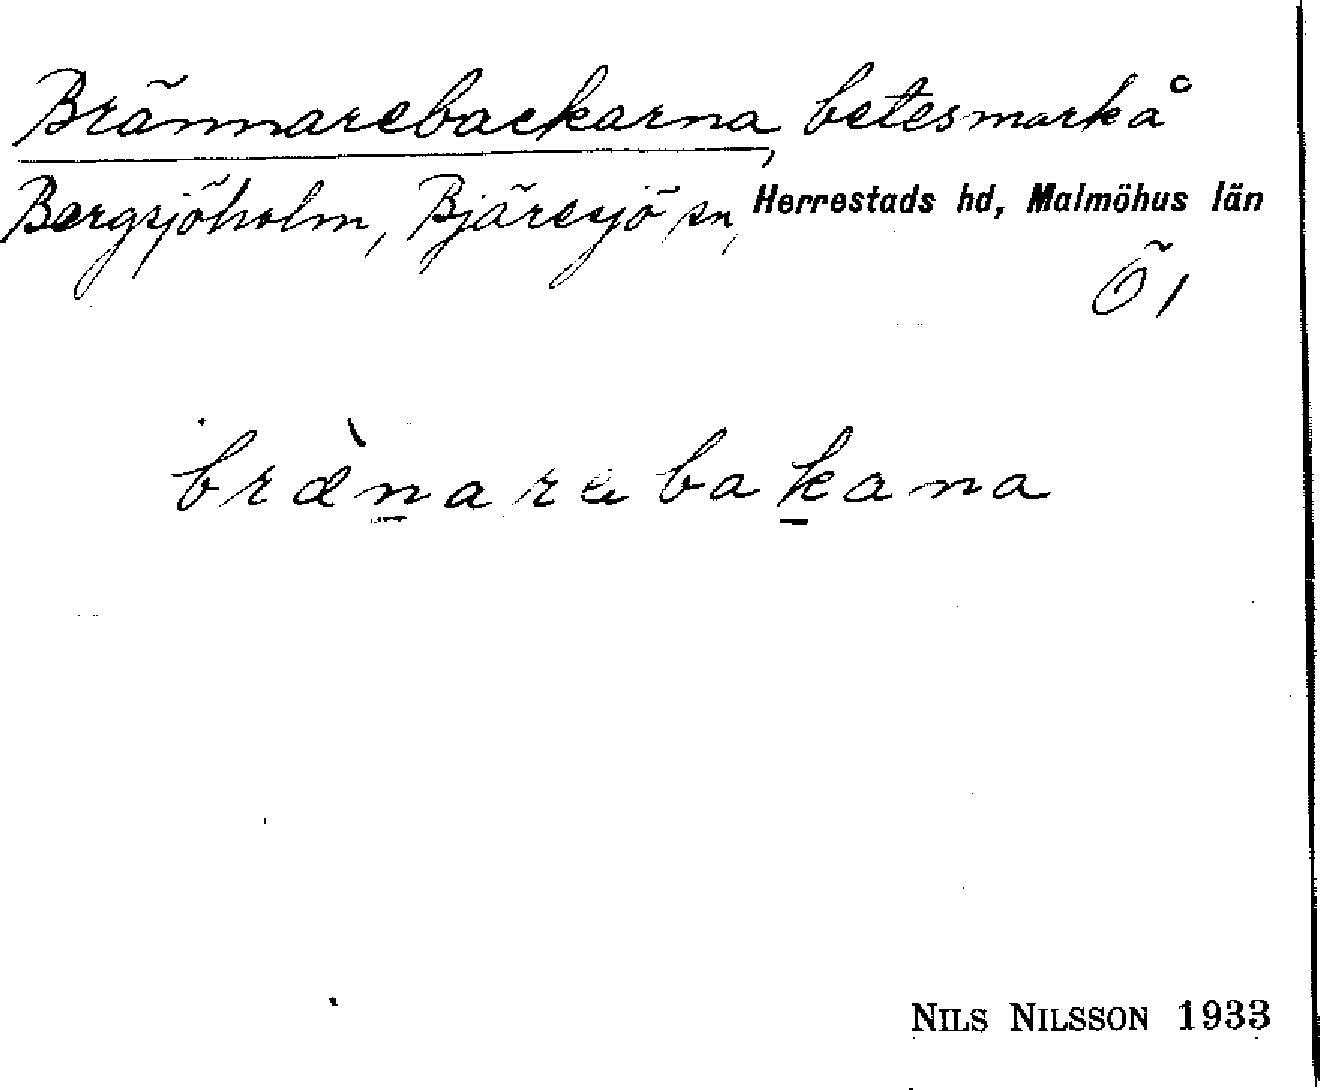 Brännarebackarna, betesmark å
Bergsjöholm, Bjäresjö sn, Herrestads hd, Malmöhus län
Ö1
brànarebakana
NILS NILSSON 1933